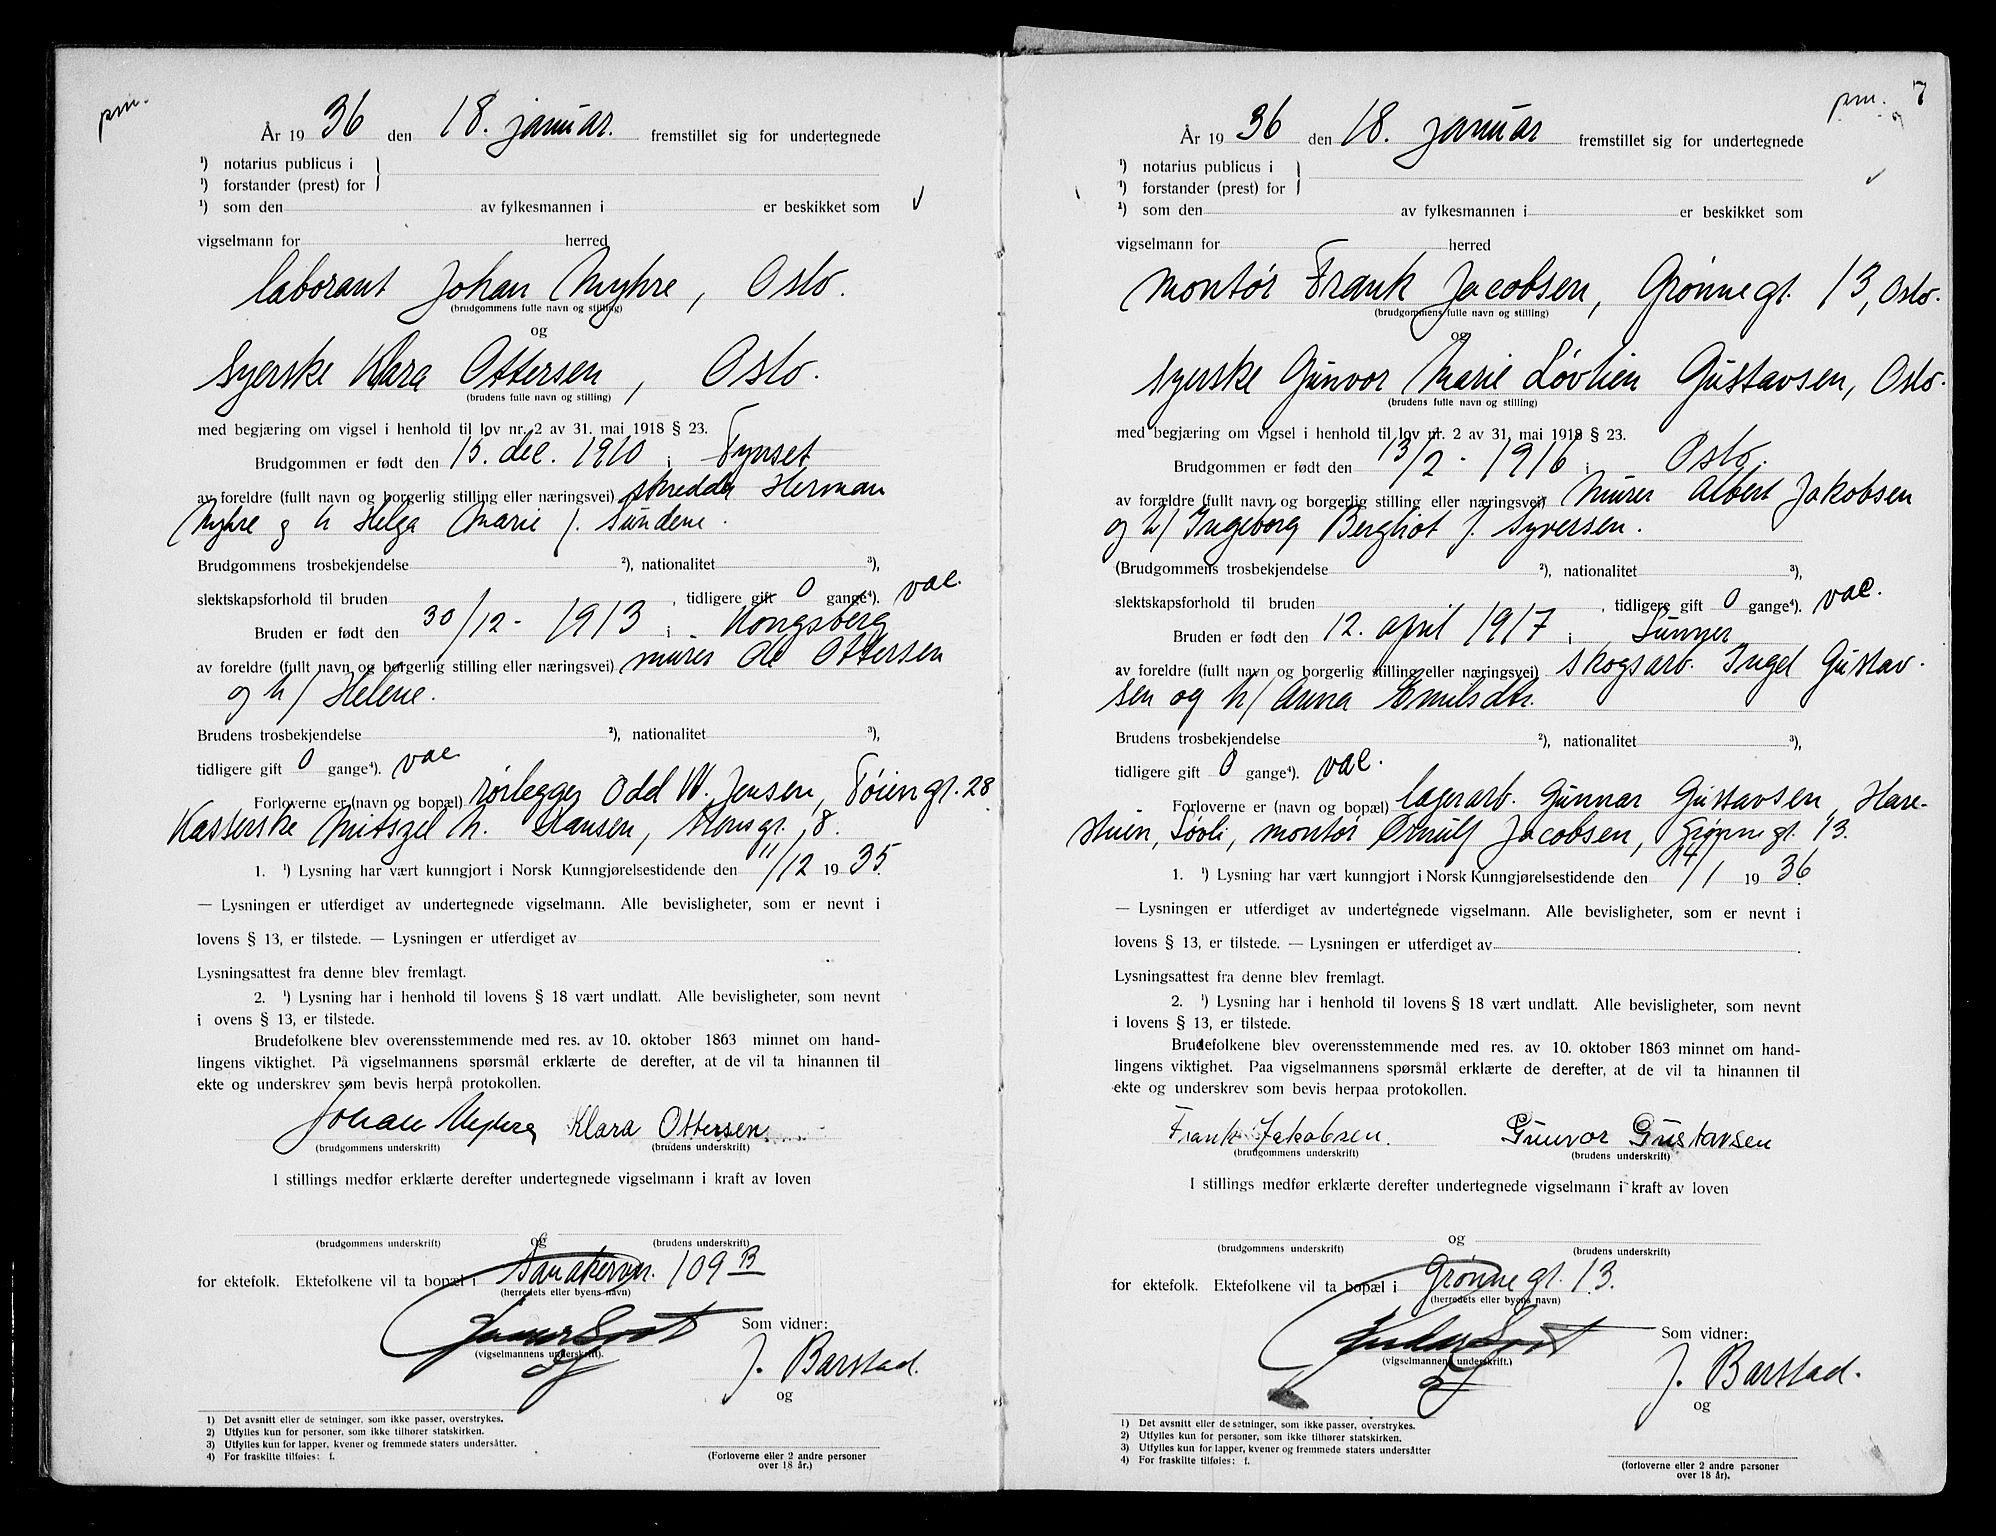 pm.
År 19 36 den 18. januar. fremstillet sig for undertegnede
¹) notarius publicus i
¹) forstander (prest) for
¹) som den av fylkesmannen i er beskikket som
vigselmann for herred
laborant Johan Myhre, Oslo.
(brudgommens fulle navn og stilling)
og
syerske Klara Ottersen, Oslo.
(brudens fulle navn og stilling)
med begjæring om vigsel i henhold til lov nr. 2 av 31. mai 1918 § 23.
Brudgommen er født den 15. dec. 1910 i Tynset
av foreldre (fullt navn og borgerlig stilling eller næringsvei) skredder Herman
Myhre og h Helga Marie f. Sundene.
Brudgommens trosbekjendelse ²), nationalitet ³),
slektskapsforhold til bruden , tidligere gift 0 gange⁴). vac.
Bruden er født den 30/12 - 1913 i Kongsberg
av foreldre (fullt navn og borgerlig stilling eller næringsvei) murer Ottersen
og h/ Helene.
Brudens trosbekjendelse ²), nationalitet ³),
tidligere gift 0 gange⁴). vac
Forloverne er (navn og bopæl) rørlegger Odd W. Jensen, Tøiengt. 28
Kasserske h. Hansen, gt. 8.
1. ¹) Lysning har vært kunngjort i Norsk Kunngjørelsestidende den 11/12 19 35.
— Lysningen er utferdiget av undertegnede vigselmann. Alle bevisligheter, som er nevnt i
lovens § 13, er tilstede. — Lysningen er utferdiget av
Lysningsattest fra denne blev fremlagt.
2. ¹) Lysning har i henhold til lovens § 18 vært undlatt. Alle bevisligheter, som nevnt
i ovens § 13, er tilstede.
Brudefolkene blev overensstemmende med res. av 10. oktober 1863 minnet om hand-
lingens viktighet. På vigselmannens spørsmål erklærte de derefter, at de vil ta hinannen til
ekte og underskrev som bevis herpå protokollen.
Johan Myhre Klara Ottersen
(brudgommens underskrift) (brudens underskrift)
I stillings medfør erklærte derefter undertegnede vigselmann i kraft av loven
og
(brudgommens underskrift) (brudens underskrift)
for ektefolk. Ektefolkene vil ta bopæl i Sandakervn. 109 B
(herredets eller byens navn)
Som vidner:
(vigselmannens underskrift).
J. Barstad.
og
1) Det avsnitt eller de setninger, som ikke passer, overstrykes.
2) Utfylles kun for personer, som ikke tilhører statskirken.
3) Utfylles kun for lapper, kvener og fremmede staters undersåtter.
4) For fraskilte tilføies: f.
(Forloverne eller 2 andre personer
over 18 år.)
pm. 7
År 19 36 den 18. januar fremstillet sig for undertegnede
¹) notarius publicus i
¹) forstander (prest) for
¹) som den av fylkesmannen i er beskikket som
vigselmann for herred
montør Frank Jacobsen, Grønnegt. 13, Oslo.
(brudgommens fulle navn og stilling)
og
syerske Gunvor Marie Løvlien Gustavsen, Oslo.
(brudens fulle navn og stilling)
med begjæring om vigsel i henhold til lov nr. 2 av 31. mai 1918 § 23.
Brudgommen er født den 13/2 - 1916 i Oslo.
av forældre (fullt navn og borgerlig stilling eller næringsvei) murer Albert Jakobsen
og h/ Ingeborg Bergliot f. Syversen.
(Brudgommens trosbekjendelse ²), nationalitet ³),
slektskapsforhold til bruden , tidligere gift 0 gange⁴). vac.
Bruden er født den 12. april 1917 i Lunner
av foreldre (fullt navn og borgerlig stilling eller næringsvei) skogsarb. Ingel Gustav-
sen og h/ Anna Emilsdtr.
Brudens trosbekjendelse ²), nationalitet ³),
tidligere gift 0 gange⁴). vac.
Forloverne er (navn og bopæl) lagerarb. Gunnar Gustavsen, Hare-
stuen, Løvli, montør Ørnulf Jacobsen, Grønnegt. 13.
1. ¹) Lysning har vært kunngjort i Norsk Kunngjørelsestidende den 14/1 19 36.
— Lysningen er utferdiget av undertegnede vigselmann. Alle bevisligheter, som er nevnt i
lovens § 13, er tilstede. — Lysningen er utferdiget av
Lysningsattest fra denne blev fremlagt.
2. ¹) Lysning har i henhold til lovens § 18 vært undlatt. Alle bevisligheter, som nevnt
i lovens § 13, er tilstede.
Brudefolkene blev overensstemmende med res. av 10. oktober 1863 minnet om hand-
lingens viktighet. Paa vigselmannens spørsmål erklærte de derefter, at de vil ta hinannen til
ekte og underskrev som bevis herpaa protokollen.
Frank Jakobsen. Gunvor Gustavsen
(brudgommens underskrift) (brudens underskrift)
I stillings medfør erklærte derefter undertegnede vigselmann i kraft av loven
og
(brudgommens underskrift) (brudens underskrift)
for ektefolk. Ektefolkene vil ta bopæl i Grønnegt. 13.
(herredets eller byens navn)
Som vidner:
(vigselmannens underskrift.)
J. Barstad.
og
1) Det avsnitt eller de setninger, som ikke passer, overstrykes.
2) Utfylles kun for personer, som ikke tilhører statskirken.
3) Utfylles kun for lapper, kvener og fremmede staters undersåtter
4) For fraskilte tilføies: f.
(forloverne eller 2 andre personer
over 18 år).